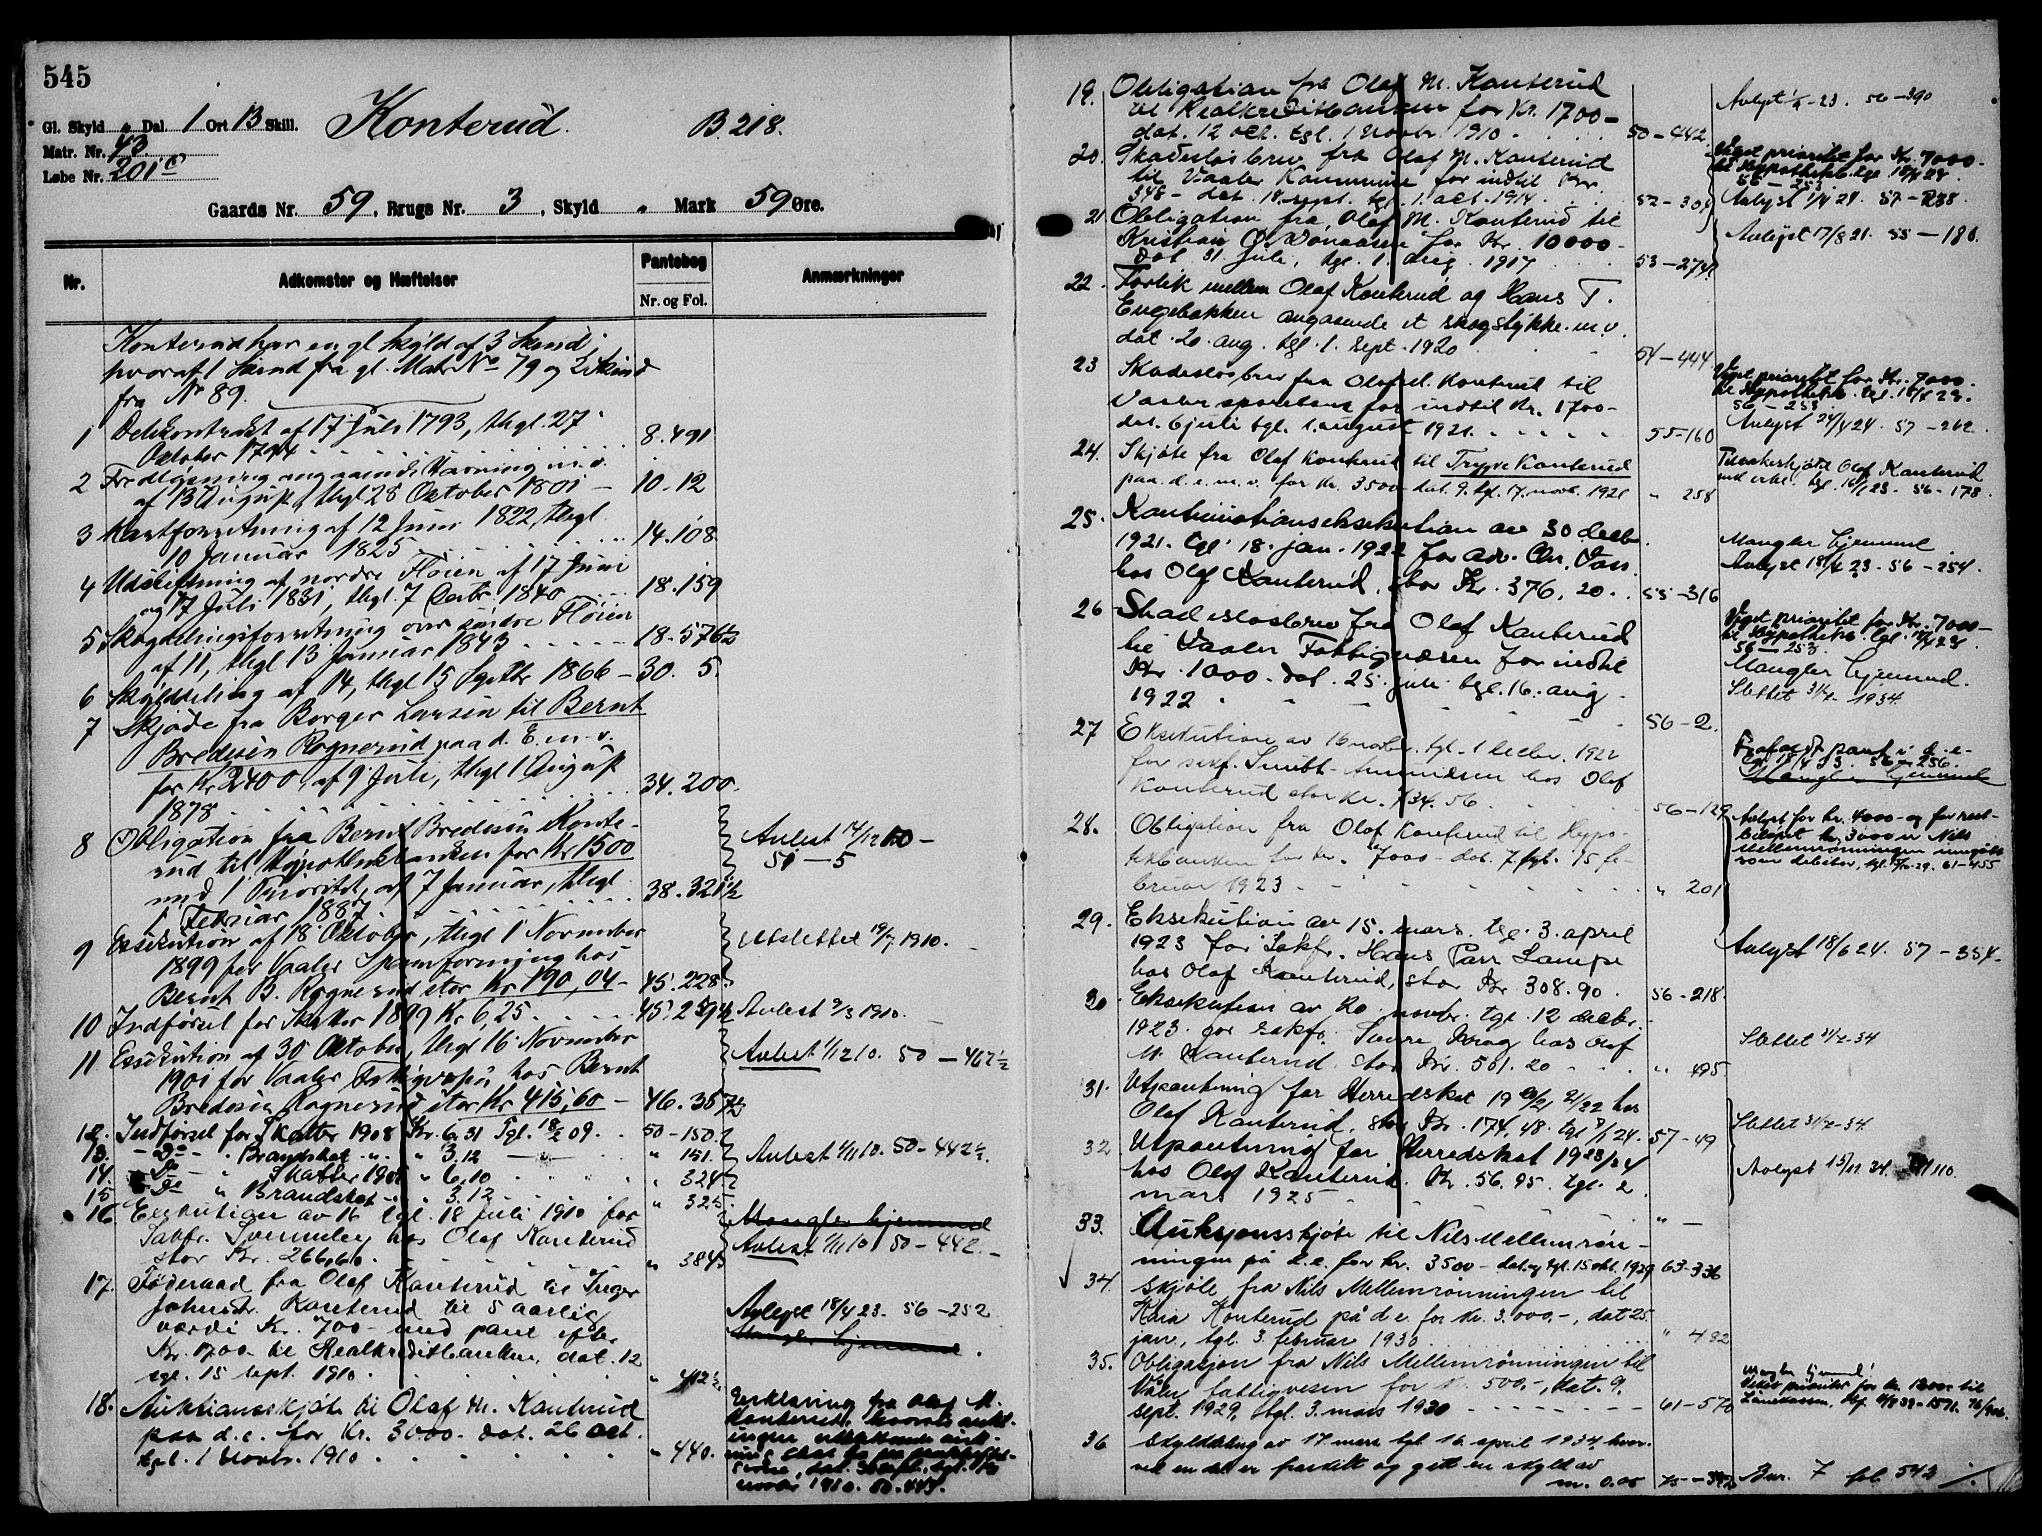 545
Gl. Skyld " Dal. 1 Ort 13 Skill. Konterud. B. 218.
Matr. Nr. 43.
Løbe Nr. 201
Gaards Nr. 59, Brugs Nr. 3, Skyld " Mark 59 Øre.
Nr. Adkomster og Hæftelser Pantebog Anmærkninger
Nr. og Fol.
Konterud har en gl. Skyld af 3 Skind,
hvoraf 1 Skind fra gl. Matr. No 79 og 2 Skind
fra No 89.
1 Delekontrakt af 17 Juli 1793, thgl. 27
Oktober 1794 8.491
2 Fredløsning angaaende Havning m.v.
af 13 August, thgl 28 Oktober 1801 - 10.12
3 12 Juni 1822, thgl.
10 Januar 1825 14.108
4 Udskiftning af nordre Fløien af 17 Juni
og 17 Juli 1831, thgl. 7 Oktbr. 1840 18.159
5 Skogdelingsforretning over søndre Fløien
af 11, thgl 13 Januar 1843 18.576
6 Skylddeling af 14, thgl 15 Septbr 1866 - 30. 5.
7 Skjøde fra Borger Larsen til Bernt
Bredesen Rognerud paa d. E. m. v.
for Kr 2400, af 9 Juli, thgl 1 August
1878 34.200.
8 Obligation fra Bernt Bredesen Konte-
rud til Hypothekbanken for Kr 1500
med 1 Prioritet, af 7 Januar, thgl
1 Februar 1887 38.321½
Avlest 14/12 10 -
50 - 5
9 Exekution af 18 Oktober, thgl 1 November
1899 for Vaaler Spareforening hos
Bernt B. Rognerud stor Kr 190,04 - 45.228.
Udslettet 19/7 1910.
10 Indførsel for Skatter 1899 Kr 6,25 45.259½ Avlest 9/3 1910.
11 Exekution af 30 Oktober, thgl 16 November
1901 for Vaaler Fattigvæsen hos Bernt
Bredesen Rognerud stor Kr 415,60 - 46.357½
Avlest 1/12 10. 50 - 467½
12. Indførsel for Skatter 1908 Kr. 6.31 Tgl. 18/2 09. 50-150.
13. - Do - " Brandskat " " 3.12 " 151.
14. Do " Skatter 1908 " 6.10 " 324
15 Do " Brandskat " 3.12 " 325.
Avlest 1/11 10. 50 - 442½.
16 Exekution av 16 tgl. 18 juli 1910 for
Sakfr. Svenneby hos Olaf Konterud
stor Kr. 266,60. " 384
Mangler hjemmel
Avlest 1/11 10 50 - 442.
17. Føderaad fra Olaf Konterud til Inger
Johnsdr. Konterud til 5 aarlig
værdi Kr. 700 - med pant efter
Kr. 1700 - til Realkreditbanken, dat. 12
tgl. 15 sept. 1910. " 412½
Avlyst 18/4 23. 56 - 252
Mangler hjemmel.
18. Auktionsskjøte til Olaf M. Konterud
paa d.e. for Kr. 3000. - dat. 26 oct.
tgl. 1 novbr. 1910 " 440.
Erklæring fra Olaf M.
Konterud
novbr 1910. 50-443.
19. Obligation fra Olaf M. Konterud
til Realkreditbanken for Kr. 1700 -
dat. 12 oct. tgl. 1 novbr. 1910 50-442.
56-390
20. Skadesløsbrev fra Olaf M. Konterud
til Vaaler Kommune for indtil Kr.
348 - dat. 18 sept. tgl. 1. oct. 1914
Veget prioritet for Kr. 7000 -
til Hypothekb. tgl. 18/4 23.
56 - 253
21 Obligation fra Olaf M. Konterud til
for Kr. 10000 -
dat. 31 juli, tgl. 1. aug. 1917 53-274
Avlyst 17/8 21. 55 - 180.
22. Forlik mellem Olaf Konterud og Hans T.
Engebakken angaaende et skogstykke m.v.
dat. 20. aug. tgl. 1. sept. 1920 54-444
23 Skadesløsbrev fra Olaf M. Konterud til
Vaaler sparebank for indtil Kr. 1700 -
dat. 6 juli tgl. 1. august 1921. 55-160
Veget prioritet for Kr. 7000.
til Hypothekb. tgl. 18/4 23.
56 - 253
Avlyst 24/4 24. 57 - 262
24. Skjøte fra Olaf Konterud til Trygve Konterud
paa d.e. m.v. for Kr. 3500 - dat. 9. tgl. 17. novb. 1921 " 258
Tilbakeskjøtet Olaf Konterud
56 - 178.
25. Konkursotionseksekution av 30 decbr.
1921. tgl. 18. jan. 1922 for adv. Chr. Vass
hos Olaf Konterud, stor Kr. 376.20. 55-316
Mangler hjemmel
Avlyst 18/4 23 - 56 - 254.
26 Skadesløsbrev fra Olaf Konterud
til Vaaler Fattigvæsen for indtil
Kr. 1000 - dat. 25. juli tgl. 16. aug.
1922 56-2.
Veget prioritet for Kr. 7000 -
til Hypothekb. tgl. 18/4 23.
56 - 253.
Mangler hjemmel.
Slettet 31/12 1934.
27 Eksekution av 16 novbr. tgl. 1 decbr. 1922
for sakf. Smith-Amundsen hos Olaf
Konterud stor Kr. 734.56 56-129
Frafaldt pant i d.e.
tgl. 18/4 23. 56-256.
Mangler hjemmel
28. Obligation fra Olaf Konterud til Hypo-
tekbanken for Kr. 7000 - dat. 7. tgl. 15 fe-
bruar 1923 " 201
Avlyst for kr. 4000 - og for rest-
beløpet kr. 3000 er Nils
Mellemrønningen inngått
som debitor, 61-455
29. Eksekution av 15. mars. tgl. 3. april
1923 for Sakfr. Hans Parr Lampe
hos Olaf Konterud, stor Kr. 308.90. 56-218.
Avlyst 18/6 24. 57 - 354.
30. Eksekution av 20. novbr. tgl. 12 decbr.
1923 for sakfr. Sverre Krog hos Olaf
M. Konterud. stor Kr. 501.20 " 495
31. Utpantning for Herredskat 1920/21 21/22 hos
Olaf Konterud. stor Kr. 174.48. tgl 9/1 24. 57-49
32 Utpantning for Herredskat 1923/24
hos Olaf Konterud. Kr. 56.95. tgl. 2.
mars 1925 " -
33. Auksjonsskjøte til Nils Mellemrøn-
ningen på d.e. for kr. 3500 - dat. og tgl. 15 okt. 1929 63-336
34. Skjøte fra Nils Mellemrønningen til
Kaia Konterud på d.e. for kr. 3.000,-, dat 25.
jan., tgl. 3. februar 1930 " 482
35. Obligasjon fra Nils Mellemrønningen til
Våler fattigvesen for kr. 500.-, dat. 9.
sept. 1929, tgl. 3. mars 1930 61-570
Mangler hjemmel
36 Skylddeling av 17 mars tgl. 16. april 1934, hvor-
ved en del er fraskilt og gitt en skyld av
m. 0.05 Bnr. 7 fol. 542